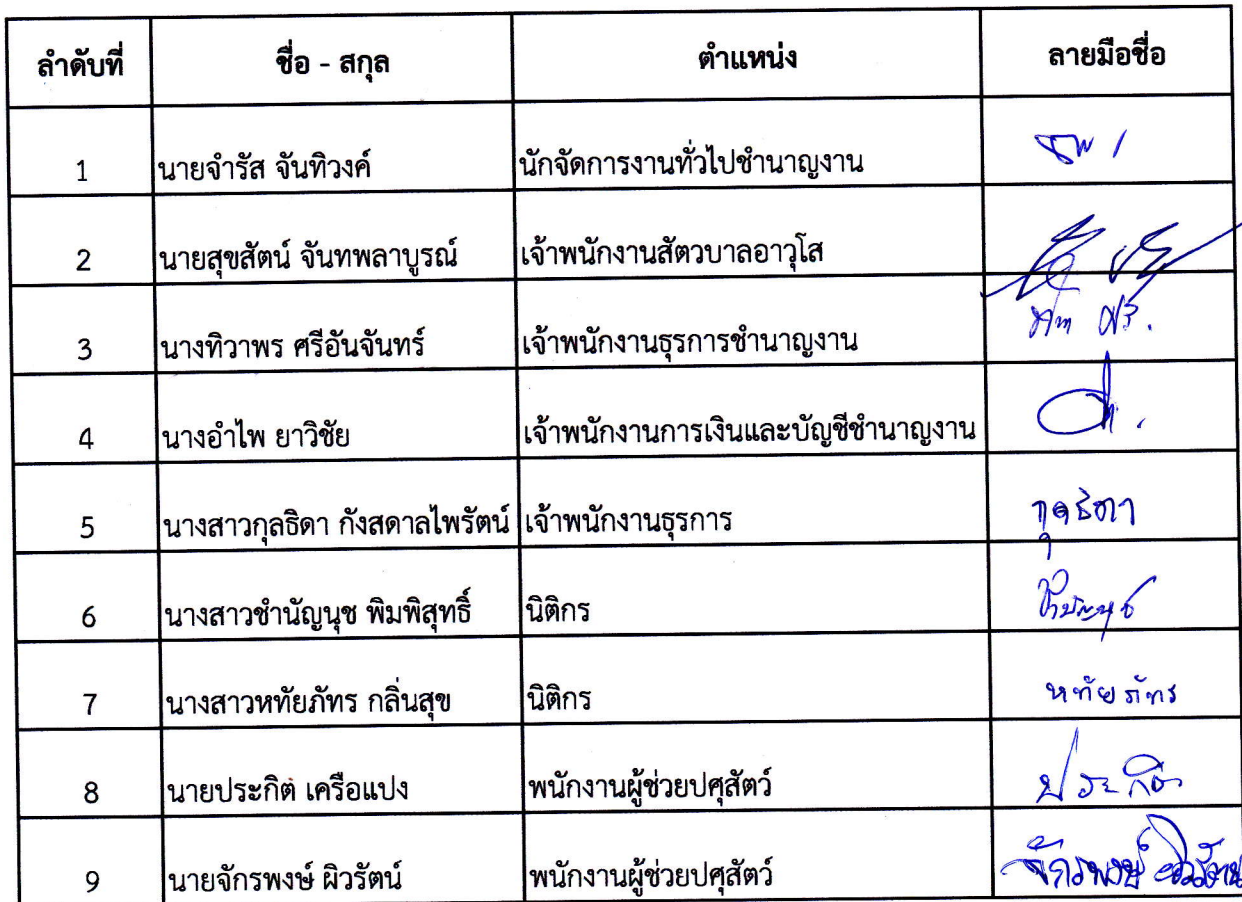 ลำดับที่ ชื่อ - สกุล ตำแหน่ง ลายมือชื่อ
1 นายจำรัส จันทิวงค์ นักจัดการงานทั่วไปชำนาญงาน
2 นายสุขสัตน์ จันทพลาบูรณ์ เจ้าพนักงานสัตวบาลอาวุโส
3 นางทิวาพร ศรีอันจันทร์ เจ้าพนักงานธุรการชำนาญงาน
4 นางอำไพ ยาวิชัย เจ้าพนักงานการเงินและบัญชีชำนาญงาน
5 นางสาวกุลธิดา กังสดาลไพรัตน์ เจ้าพนักงานธุรการ กุลธิดา
6 นางสาวชำนัญนุช พิมพิสุทธิ์ นิติกร ชำนัญนุช
7 นางสาวหทัยภัทร กลิ่นสุข นิติกร หทัยภัทร
8 นายประกิต เครือแปง พนักงานผู้ช่วยปศุสัตว์ ประกิต
9 นายจักรพงษ์ ผิวรัตน์ พนักงานผู้ช่วยปศุสัตว์ จักรพงษ์ ผิวรัตน์